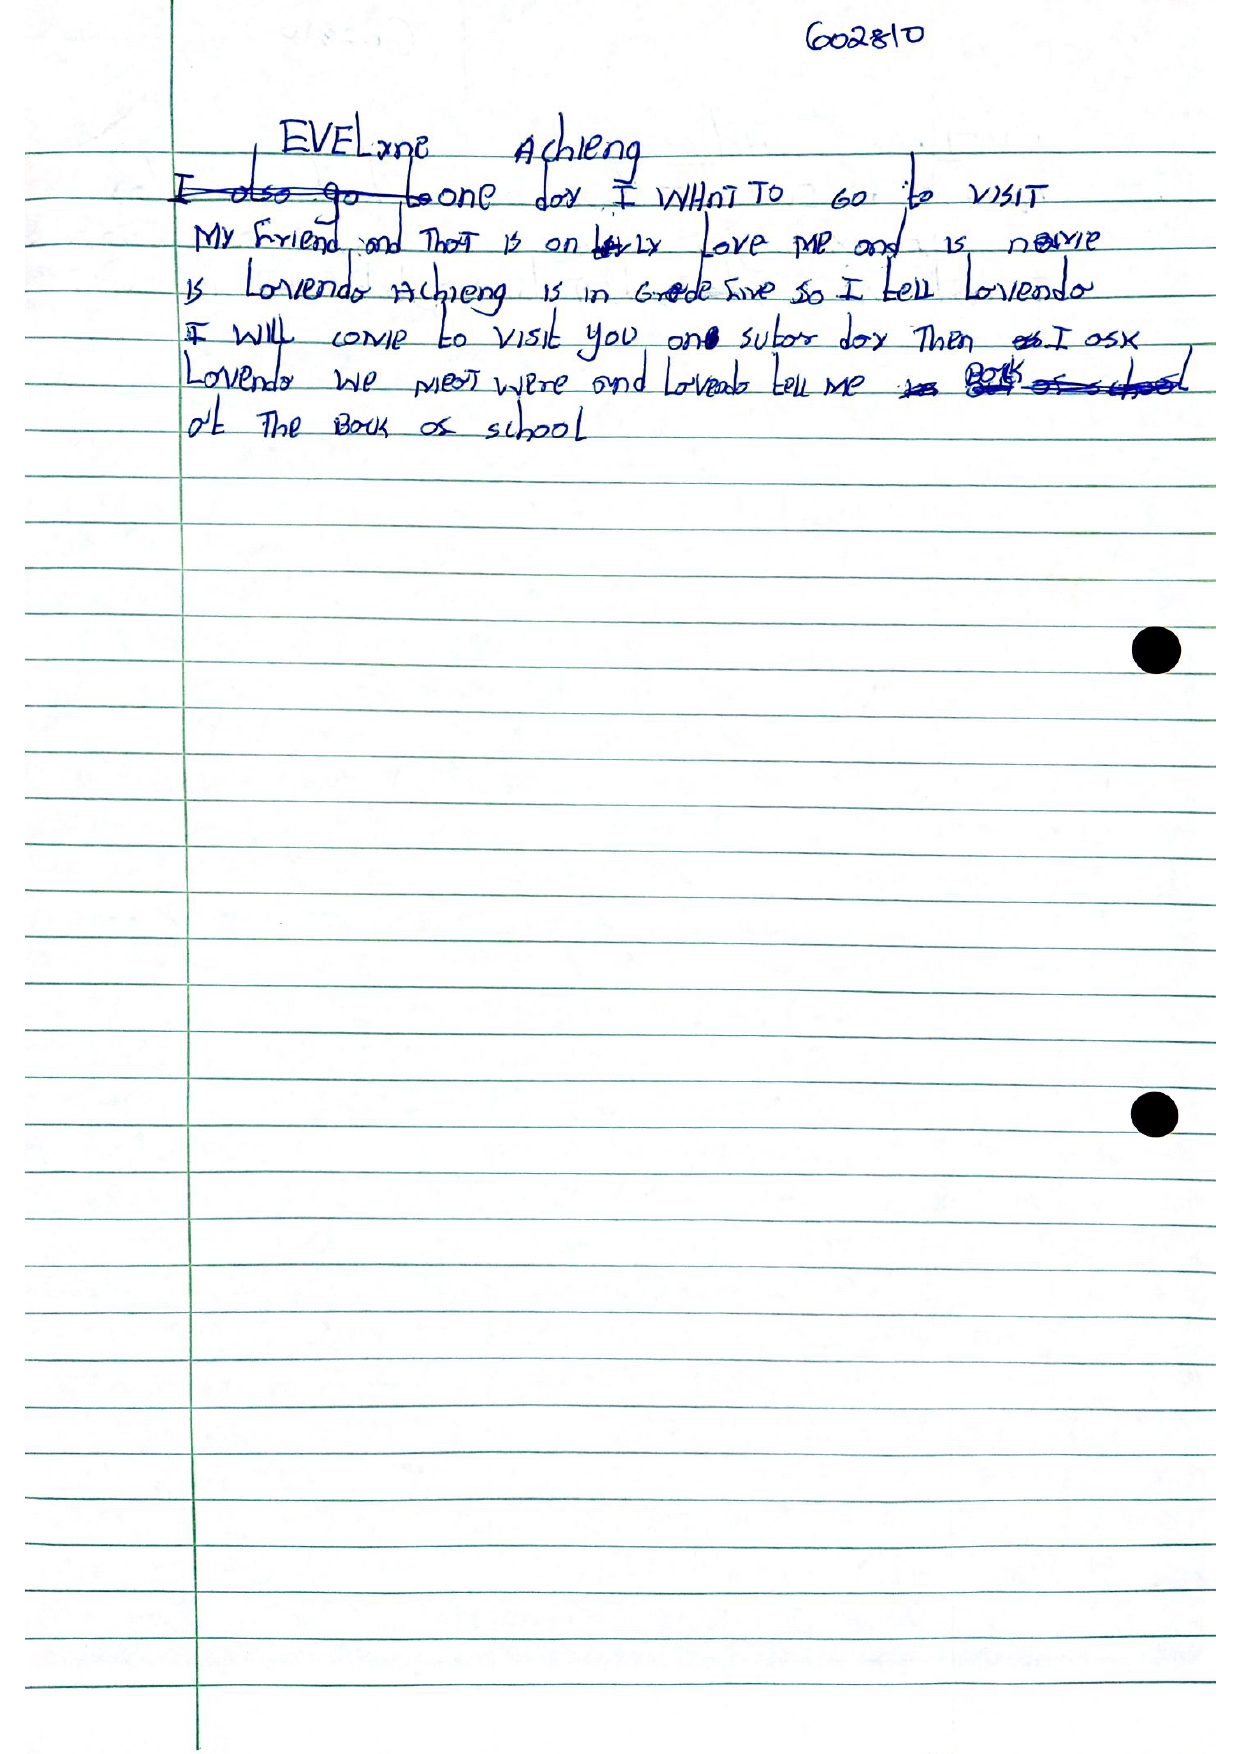 602810
EVELyne Achieng
I also go to one day I WANT TO GO to VISIT
My Friend and That is on ly Love Me and is name
is Lovenda Achieng is in Grade Five So I tell Lovenda
I will come to visit you one sutar day Then as I ask
Lovenda we meat were and Lovenda tell me Back of school
at The Back of school